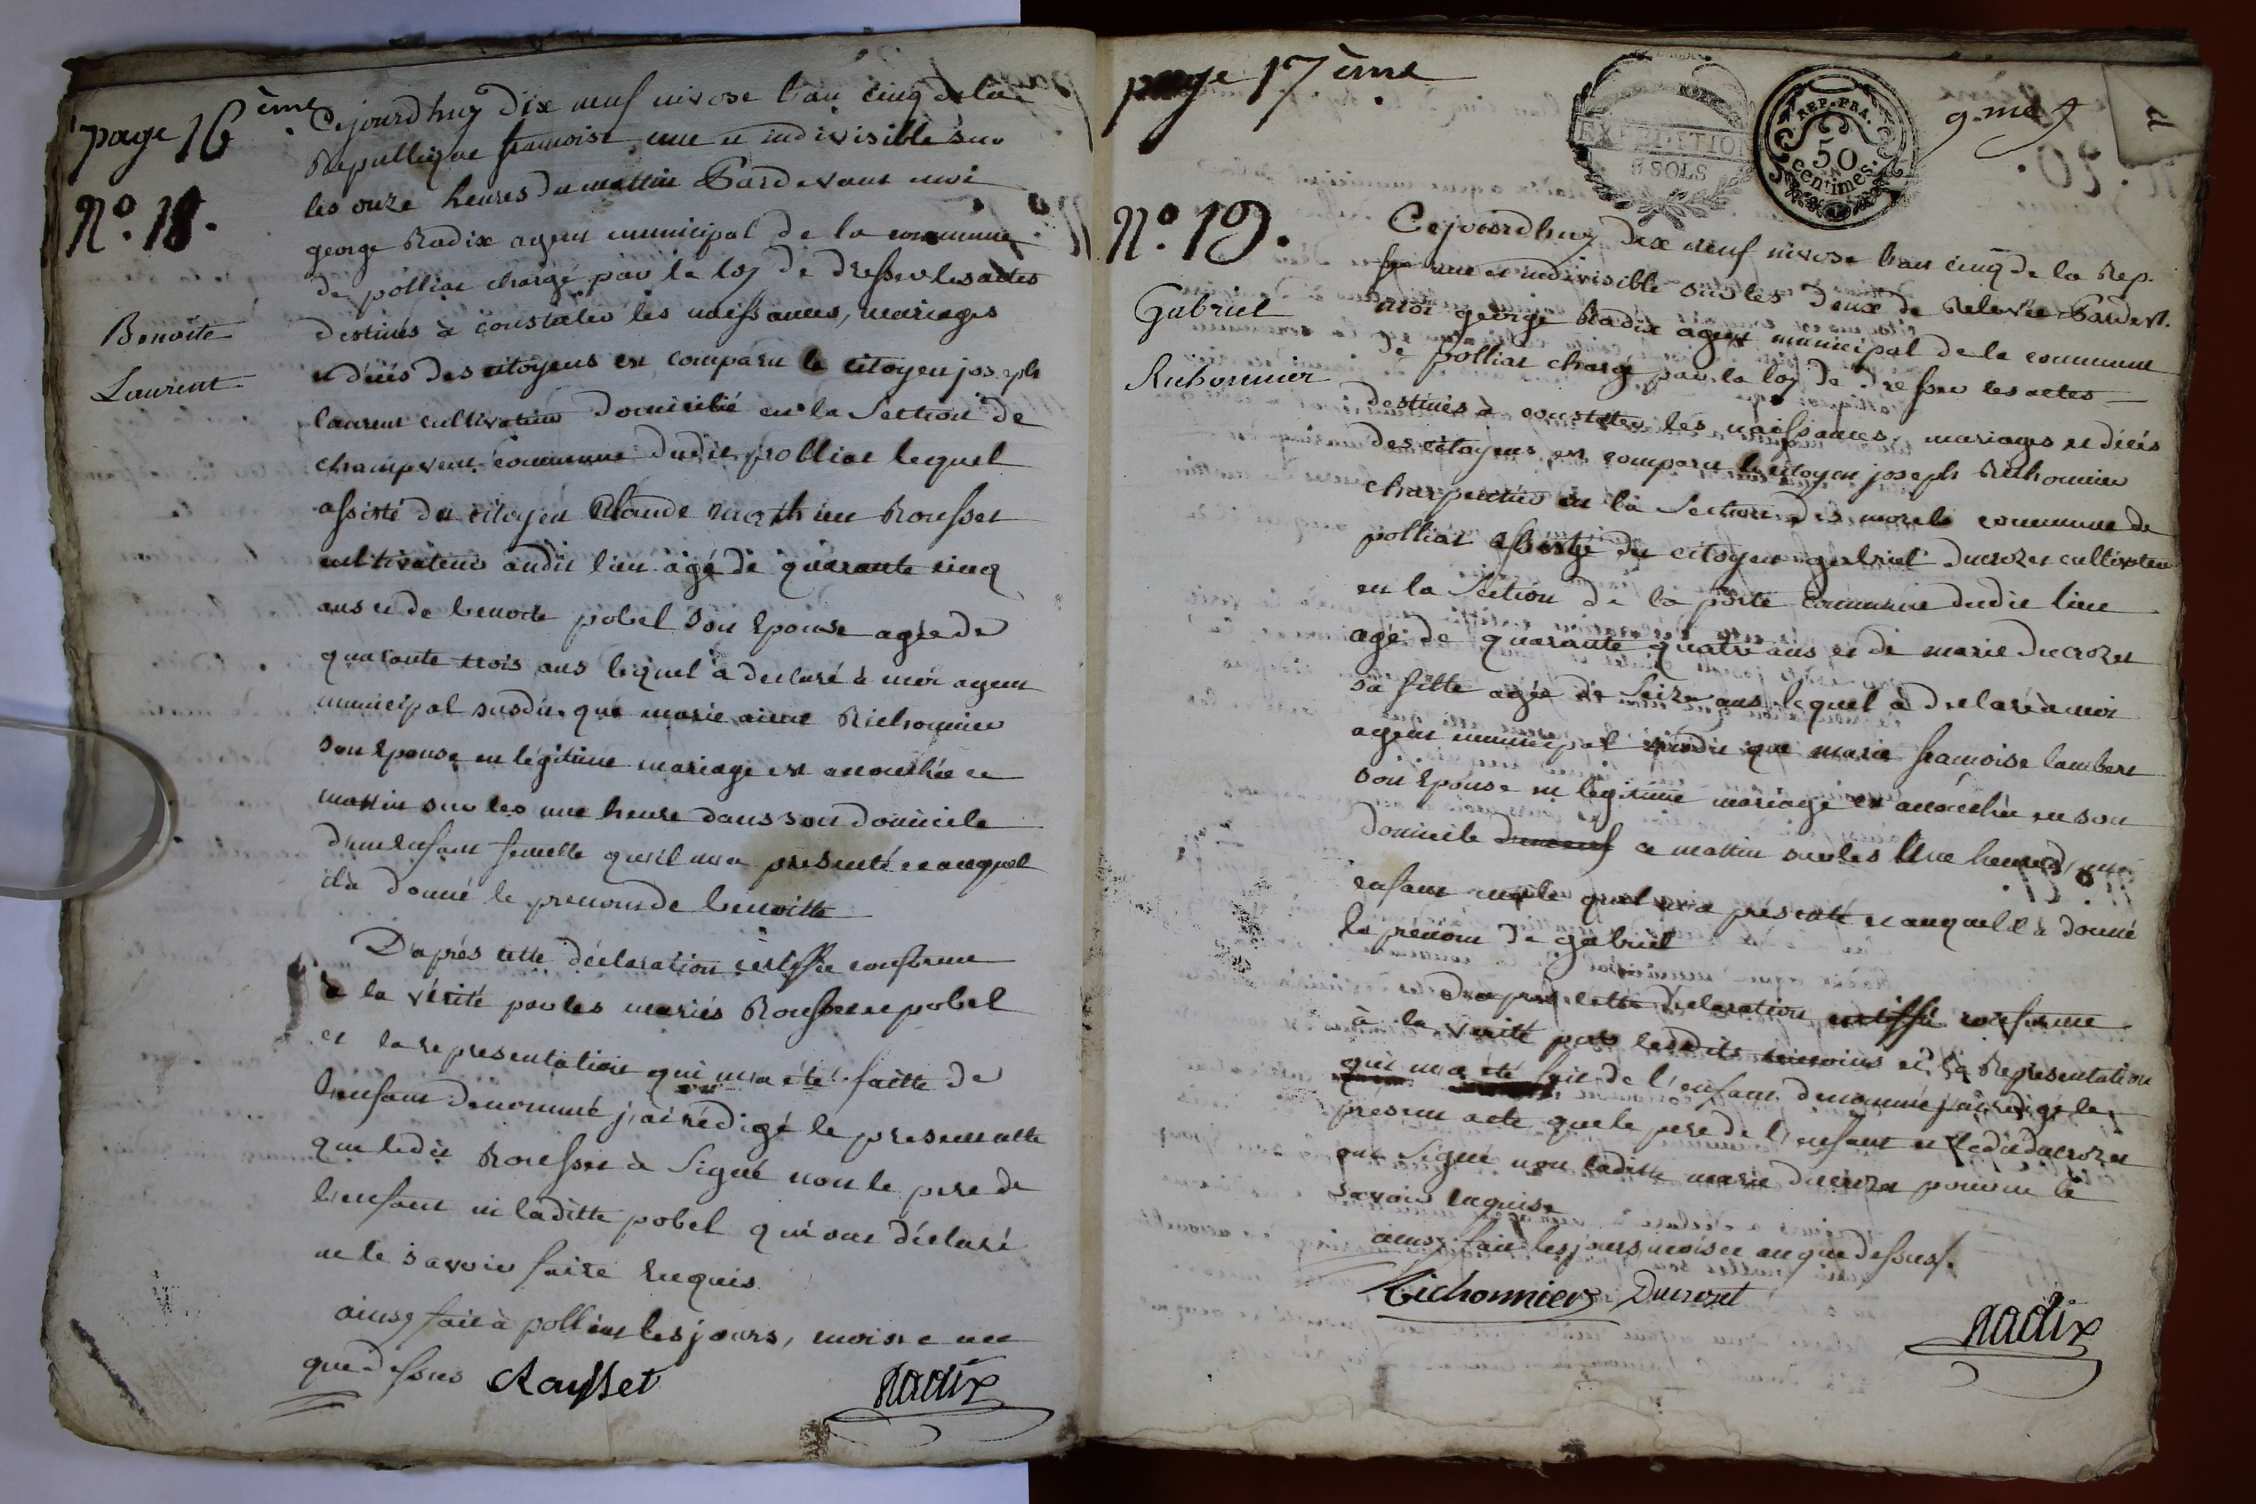 page 16 ème
N°. 18.
Benoite
Laurent
Cejourdhuy dix neuf nivose l'an cinq de la
Republique francoise une et indivisible sur
les onze heures du mattin Pardevant moi
george Radix agent municipal de la commune
de polliat chargé par la loy de dresser les actes
destinés à constater les naissances, mariages
et décés des citoyens est comparu le citoyen joseph
laurent cultivateur domicilié en la Section de
champvent commune dudit polliat lequel
assisté du citoyen Claude mathieu Rousset
cultivateur audit lieu agé de quarante cinq
ans et de benoite pobel son Epouse agée de
quarante trois ans lequel a declaré à moi agent
municipal susdit que marie aimé Richonnier
son Epouse en légitime mariage est accouchée ce
mattin sur les une heure dans son domicile
d'un Enfant femelle qu'il m'a presenté et auquel
il a donné le prenom de benoitte
D'après cette déclaration certiffiée conforme
à la vérité par les mariés Rousset et pobel
et la representation qui m'a été faitte de
l'enfant denommé j'ai rédigé le present acte
que ledit Rousset à Signé non le pere de
l'enfant ni laditte pobel qui ont déclaré
ne le savoir faire Enquis
ainsy fait à polliat les jours, mois et an
que dessus Rousset
Radix
page 17 ème
EXPEDITION
5 SOLS
REP. FRA.
50
centimes.
N°. 19.
Gabriel
Richonnier
Cejourdhuy dix neuf nivose l'an cinq de la Rep.
fse une et indivisible sur les deux de Relevée Pardevt.
moi george Radix agent municipal de la commune
de polliat chargé par la loy de dresser les actes
destinés à constater les naissances, mariages et décés
des citoyens est comparu le citoyen joseph Richonnier
charpentier en la Section des morels commune de
polliat assisté du citoyen gabriel ducrozet cultivateur
en la Section de la poste commune dudit lieu
agé de quarante quatre ans et de marie ducrozet
sa fille agée de Seize ans lequel à declaré à moi
agent municipal susdit que marie francoise lambert
son Epouse en legitime mariage est accouchée en son
domicile ce mattin sur les Une heure d'un
enfant male quil m'a présenté et auquel il à donné
le prénom de gabriel
D'après cette declaration certiffié conforme
à la verité par lesdits temoins et la Representation
qui m'a été fait de l'enfant denommé j'ai rédigé le
présent acte que le pere de l'enfant et ledit ducrozet
ont Signé non laditte marie ducrozet pour ne le
savoir Enquise
ainsy fait les jours, mois et an que dessus.
Richonnier Ducrozet
Radix